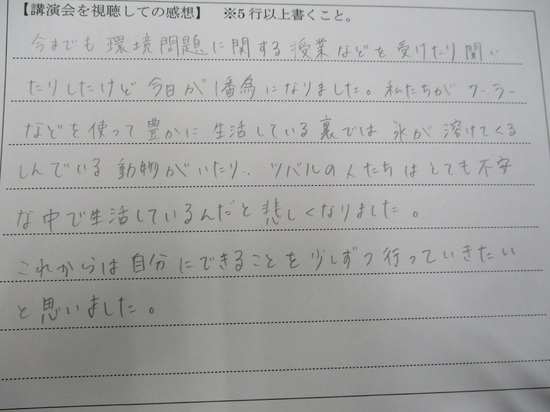 【講演会を視聴しての感想】　※5行以上書くこと。
今までも環境問題に関する授業などを受けたり聞い
たりしたけど今日が1番為になりました。私たちがクーラー
などを使って豊かに生活している裏では氷が溶けてくる
しんでいる動物がいたり、ツバルの人たちはとても不安
な中で生活しているんだと悲しくなりました。
これからは自分にできることを少しずつ行っていきたい
と思いました。